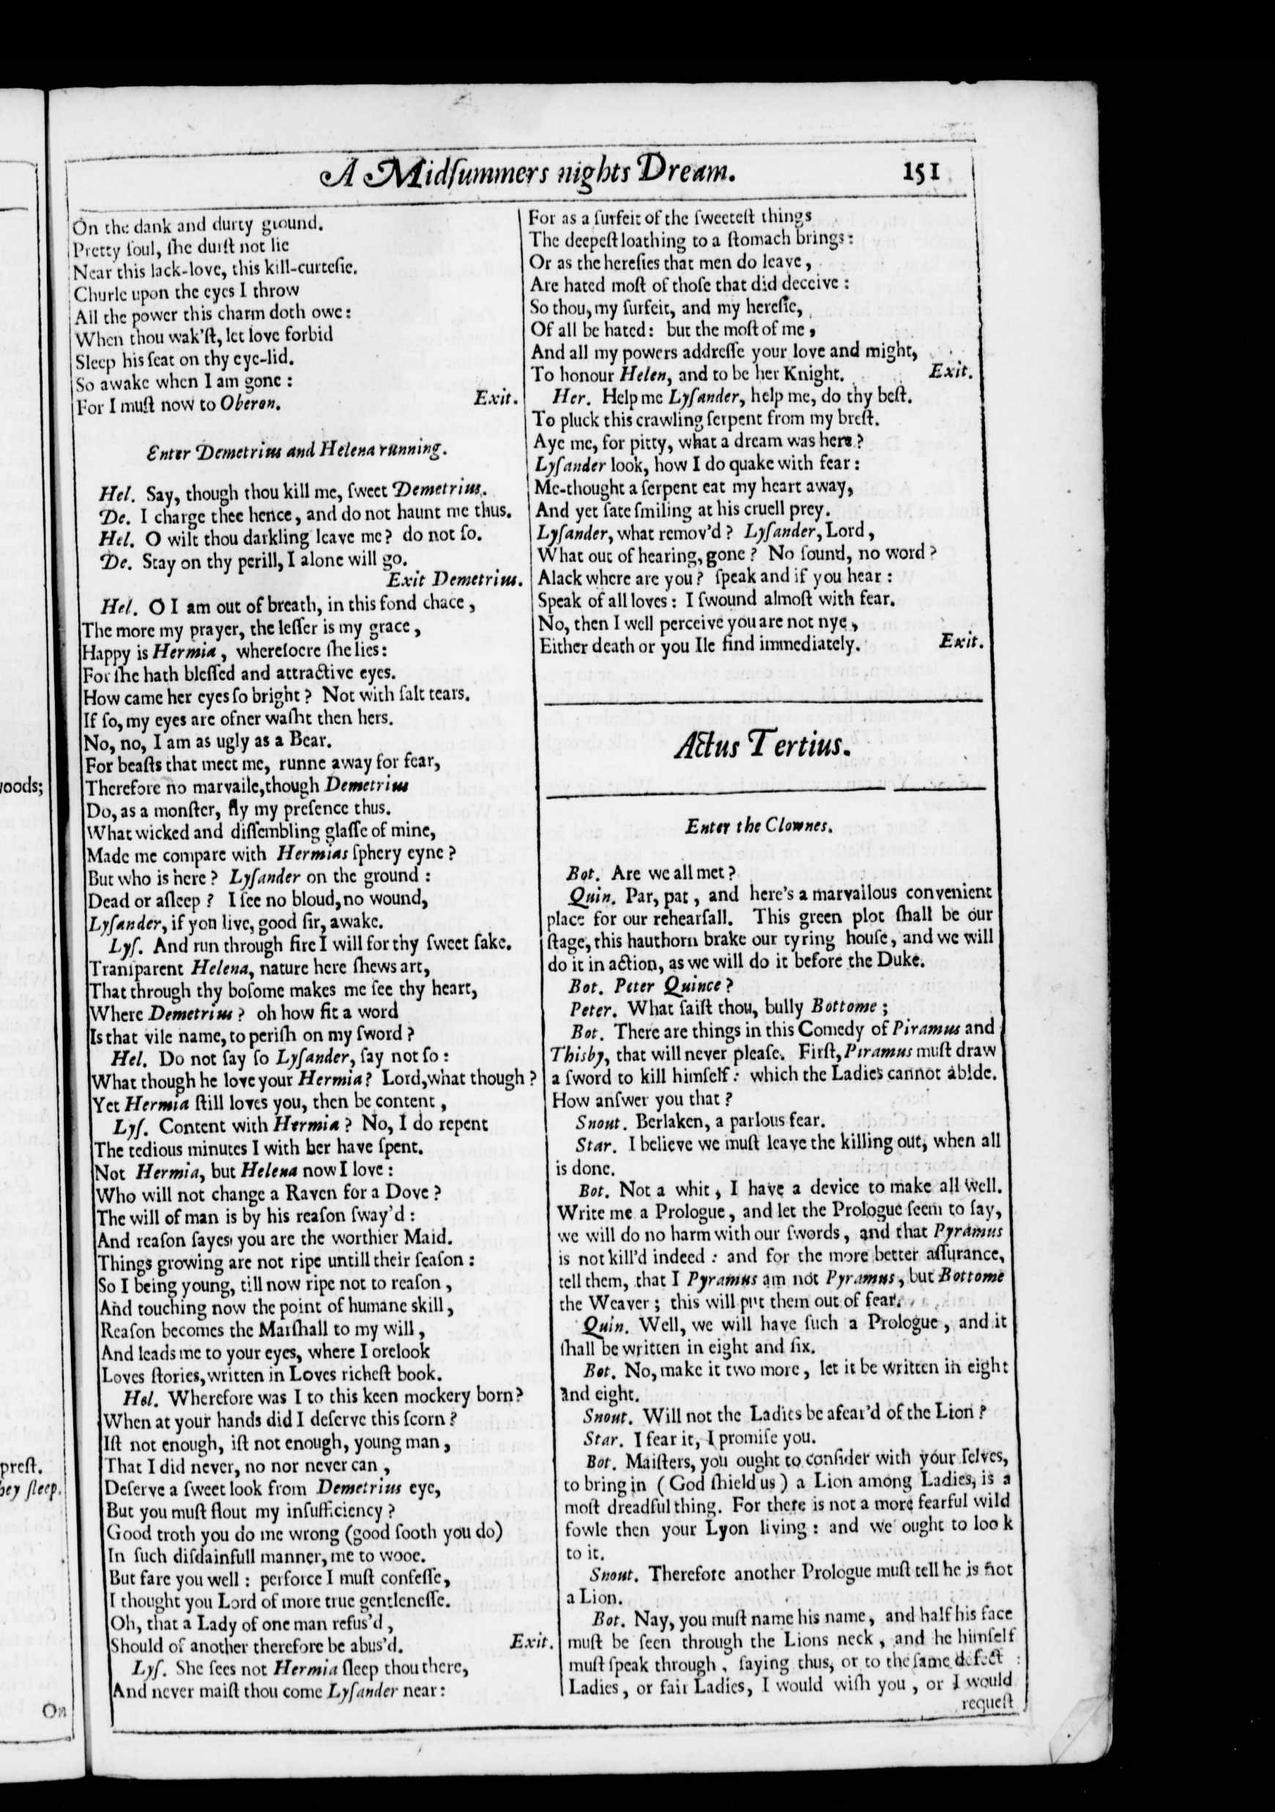 A Midſummers nights Dream. 151
On the dank and durty ground.
Pretty ſoul, ſhe durſt not lie
Near this lack-love, this kill-curteſie.
Churle upon the eyes I throw
All the power this charm doth owe:
When thou wak'ſt, let love forbid
Sleep his ſeat on thy eye-lid.
So awake when I am gone:
For I muſt now to Oberon. Exit.
Enter Demetrius and Helena running.
Hel. Say, though thou kill me, ſweet Demetrius.
De. I charge thee hence, and do not haunt me thus.
Hel. O wilt thou darkling leave me? do not ſo.
De. Stay on thy perill, I alone will go.
Exit Demetrius.
Hel. O I am out of breath, in this fond chace,
The more my prayer, the leſſer is my grace,
Happy is Hermia, whereſoere ſhe lies:
For ſhe hath bleſſed and attractive eyes.
How came her eyes ſo bright? Not with ſalt tears.
If ſo, my eyes are ofner waſht then hers.
No, no, I am as ugly as a Bear.
For beaſts that meet me, runne away for fear,
Therefore no marvaile, though Demetrius
Do, as a monſter, fly my preſence thus.
What wicked and diſſembling glaſſe of mine,
Made me compare with Hermias ſphery eyne?
But who is here? Lyſander on the ground:
Dead or aſleep? I ſee no bloud, no wound,
Lyſander, if yon live, good ſir, awake.
Lyſ. And run through fire I will for thy ſweet ſake.
Tranſparent Helena, nature here ſhews art,
That through thy boſome makes me ſee thy heart,
Where Demetrius? oh how fit a word
Is that vile name, to periſh on my ſword?
Hel. Do not ſay ſo Lyſander, ſay not ſo:
What though he love your Hermia? Lord, what though?
Yet Hermia ſtill loves you, then be content,
Lyſ. Content with Hermia? No, I do repent
The tedious minutes I with her have ſpent.
Not Hermia, but Helena now I love:
Who will not change a Raven for a Dove?
The will of man is by his reaſon ſway'd:
And reaſon ſayes you are the worthier Maid.
Things growing are not ripe untill their ſeaſon:
So I being young, till now ripe not to reaſon,
And touching now the point of humane skill,
Reaſon becomes the Marſhall to my will,
And leads me to your eyes, where I orelook
Loves ſtories, written in Loves richeſt book.
Hel. Wherefore was I to this keen mockery born?
When at your hands did I deſerve this ſcorn?
Iſt not enough, iſt not enough, young man,
That I did never, no nor never can,
Deſerve a ſweet look from Demetrius eye,
But you muſt flout my inſufficiency?
Good troth you do me wrong (good ſooth you do)
In ſuch diſdainfull manner, me to wooe.
But fare you well: perforce I muſt confeſſe,
I thought you Lord of more true gentleneſſe.
Oh, that a Lady of one man refus'd,
Should of another therefore be abus'd. Exit.
Lyſ. She ſees not Hermia ſleep thou there,
And never maiſt thou come Lyſander near:
For as a ſurfeit of the ſweeteſt things
The deepeſt loathing to a ſtomach brings:
Or as the hereſies that men do leave,
Are hated moſt of thoſe that did deceive:
So thou, my ſurfeit, and my hereſie,
Of all be hated: but the moſt of me,
And all my powers addreſſe your love and might,
To honour Helen, and to be her Knight. Exit.
Her. Help me Lyſander, help me, do thy beſt.
To pluck this crawling ſerpent from my breſt.
Aye me, for pitty, what a dream was here?
Lyſander look, how I do quake with fear:
Me-thought a ſerpent eat my heart away,
And yet ſate ſmiling at his cruell prey.
Lyſander, what remov'd? Lyſander, Lord,
What out of hearing, gone? No ſound, no word?
Alack where are you? ſpeak and if you hear:
Speak of all loves: I ſwound almoſt with fear.
No, then I well perceive you are not nye,
Either death or you Ile find immediately. Exit.
Actus Tertius.
Enter the Clownes.
Bot. Are we all met?
Quin. Par, pat, and here's a marvailous convenient
place for our rehearſall. This green plot ſhall be our
ſtage, this hauthorn brake our tyring houſe, and we will
do it in action, as we will do it before the Duke.
Bot. Peter Quince?
Peter. What ſaiſt thou, bully Bottome;
Bot. There are things in this Comedy of Piramus and
Thisby, that will never pleaſe. Firſt, Piramus muſt draw
a ſword to kill himſelf: which the Ladies cannot abide.
How anſwer you that?
Snout. Berlaken, a parlous fear.
Star. I believe we muſt leave the killing out, when all
is done.
Bot. Not a whit, I have a device to make all well.
Write me a Prologue, and let the Prologue ſeem to ſay,
we will do no harm with our ſwords, and that Pyramus
is not kill'd indeed: and for the more better aſſurance,
tell them, that I Pyramus am not Pyramus, but Bottome
the Weaver; this will put them out of fear.
Quin. Well, we will have ſuch a Prologue, and it
ſhall be written in eight and ſix.
Bot. No, make it two more, let it be written in eight
and eight.
Snout. Will not the Ladies be afear'd of the Lion?
Star. I fear it, I promiſe you.
Bot. Maiſters, you ought to conſider with your ſelves,
to bring in (God ſhield us) a Lion among Ladies, is a
moſt dreadful thing. For there is not a more fearful wild
fowle then your Lyon living: and we ought to look
to it.
Snout. Therefore another Prologue muſt tell he is not
a Lion.
Bot. Nay, you muſt name his name, and half his face
muſt be ſeen through the Lions neck, and he himſelf
muſt ſpeak through, ſaying thus, or to the ſame defect:
Ladies, or fair Ladies, I would wiſh you, or I would
requeſt
woods;
preſt.
hey ſleep.
On